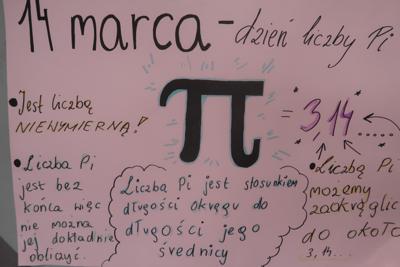 14 marca - dzień liczby Pi
• Jest liczbą
NIENYMIERNĄ!
π = 3,14.....
• Liczba Pi
jest bez
końca więc
nie można
jej dokładnie
obliczyć.
Liczba Pi jest stosunkiem
długości okręgu do
długości jego
średnicy
• Liczbą Pi
możemy
zaokrąglić
do około
3,14...